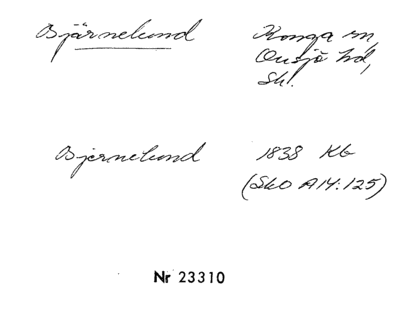 Bjärnelund Konga sn,
Onsjö hd,
Sk.
Bjernelund 1838 Kb
(SkO A14:125)
Nr 23310